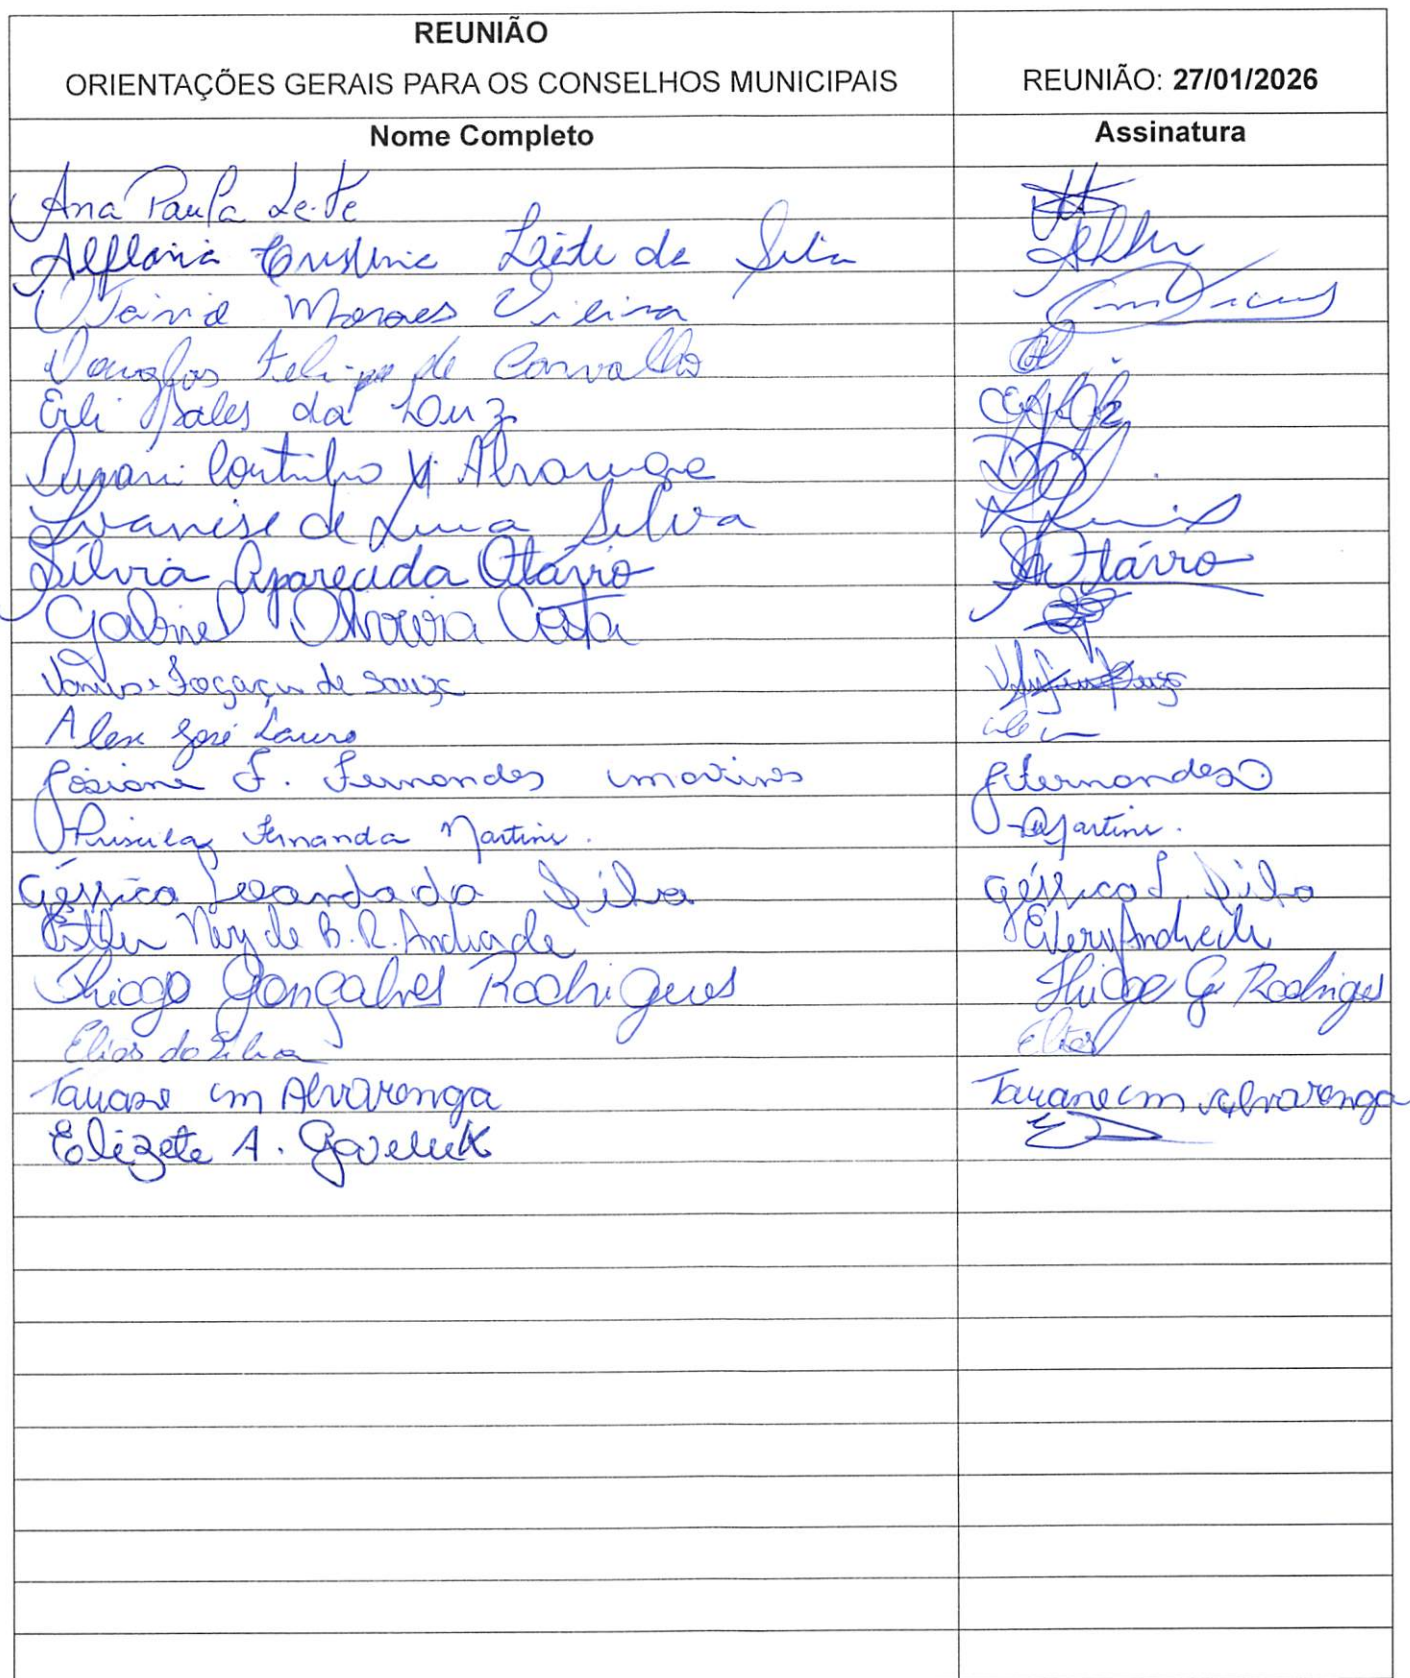 REUNIÃO
ORIENTAÇÕES GERAIS PARA OS CONSELHOS MUNICIPAIS
REUNIÃO: 27/01/2026
Nome Completo
Assinatura
Ana Paula Leite
Cristina Leite da Silva
Moraes Vieira
Douglas Felipe de Carvalho
Erli Sales da Luz
Coutinho Alvarenga
Ivanise de Lima Silva
Silvia Aparecida Otávio
Otávio
Gabriel Oliveira Costa
Fogaça de Souza
Alex José Lauro
Josiane F. Fernandes Martins
Fernandes
Priscila Fernanda Martins.
Martins.
Géssica Leandra da Silva
Géssica L. Silva
Ester Ney de B. R. Andrade
Thiago Gonçalves Rodrigues
Thiago G. Rodrigues
Elias da Silva
Elias
Tauane M Alvarenga
Tauane M Alvarenga
Elizete A.